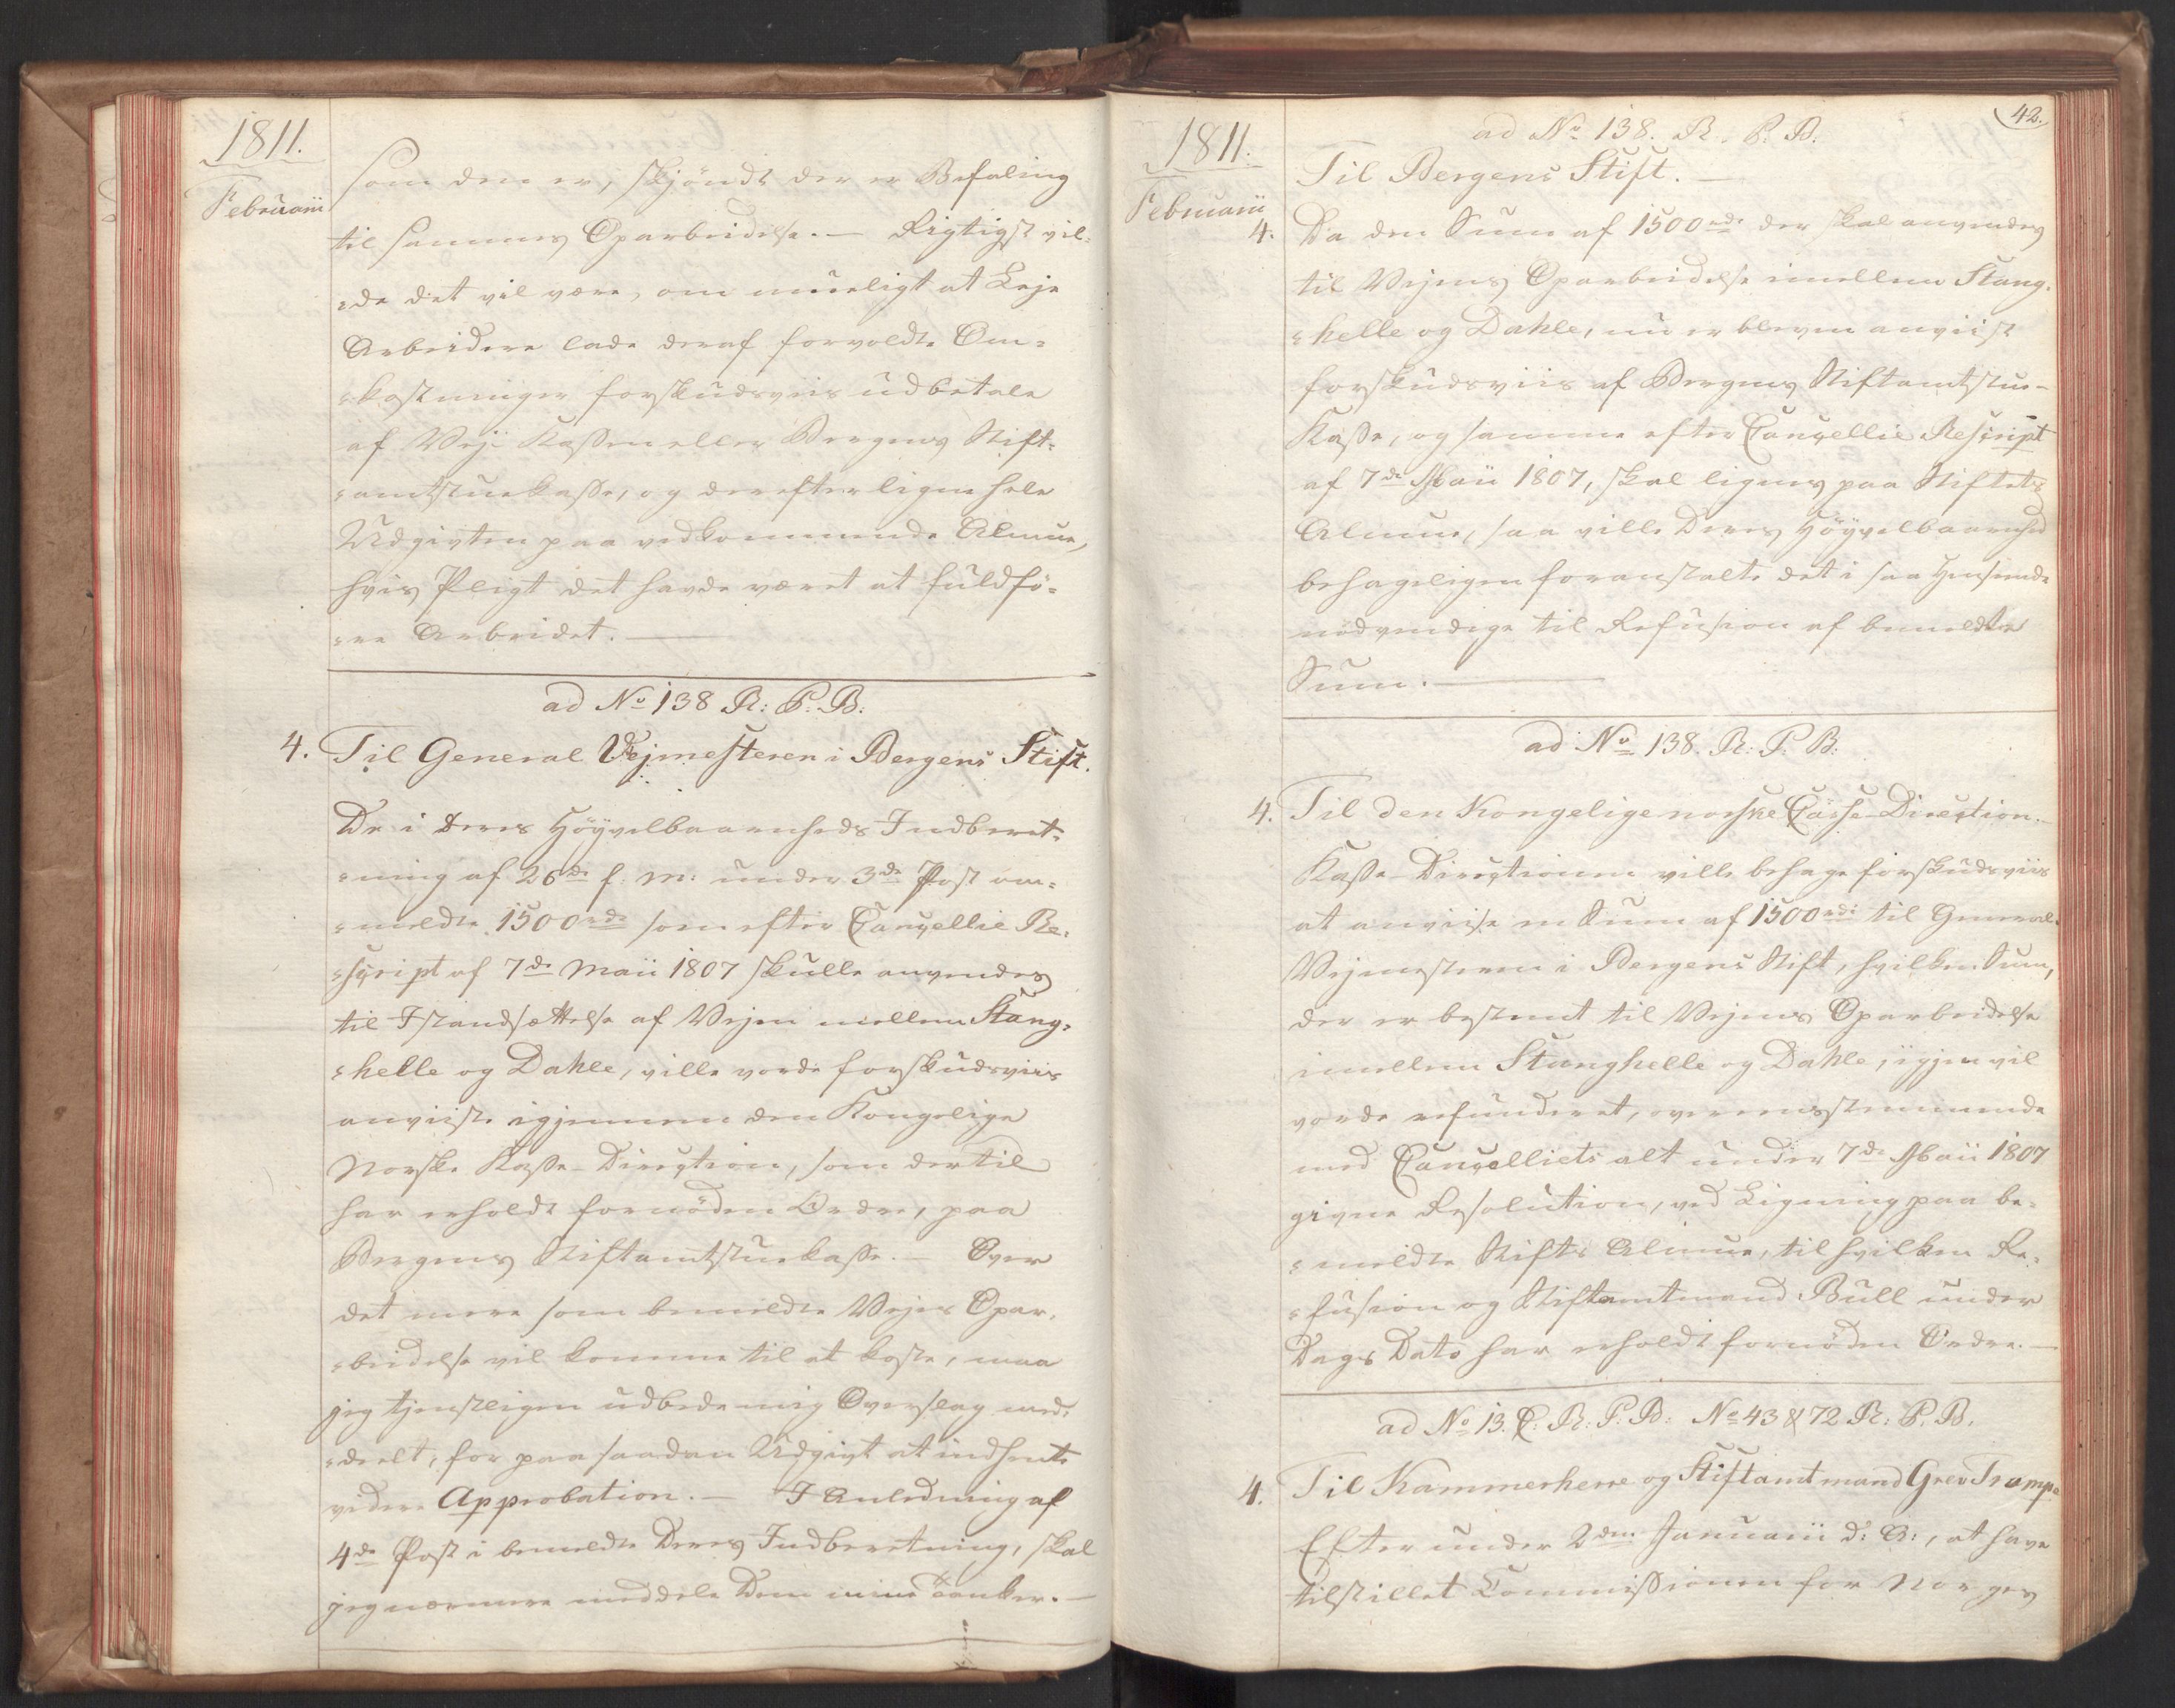 1811.
Februarii
som den er, skjöndt der er Befaling
til sammes Oparbeidelse. — Rigtigst vil-
=de det vel være, om mueligt at Leje
Arbeidere lade deraf forvoldte Om=
=kostninger forskudsviis udbetale
af Vej-Kassen eller Bergens Stift=
=amtstuekasse, og derefter ligne hele
Udgivten paa vedkommende Almue,
hvis Pligt det havde været at fuldfö=
=re Arbeidet. —
ad No 138 R: P. B:
4. Til General Vejmesteren i Bergens Stift.
De i Deres Höyvelbaarenheds Indberet=
=ning af 26de f. M: under 3de Post om=
=meldte 1500rd som efter Cancellie Re=
=script af 7de Maii 1807 skulle anvendes
til Istandsættelse af Vejen mellem Stang=
=helle og Dahle, ville vorde forskudsviis
anviiste igjennem den Kongelige
Norske Kasse-Direction, som dertil
har erholdt fornöden Ordre, paa
Bergens Stiftamtstuekasse. — Over
det mere som bemeldte Vejes Opar-
=beidelse vil komme til at koste, maa
jeg tjenstligen udbede mig Overslag med=
=deelt, for paa saadan Udgivt at indhente
videre Approbation. — I Anledning af
4de Post i bemeldte Deres Indberetning, skal
jeg nærmere meddele Dem mine Tanker. —
42.
1811.
Februarii
ad No 138. R. P. B.
Til Bergens Stift. —
4. Da den Sum af 1500rd der skal anvendes
til Vejens Oparbeidelse imellem Stang-
=helle og Dahle, nu er bleven anviist
forskudsviis af Bergens Stiftamtstue-
Kasse, og samme efter Cancellie Rescript
af 7de Maii 1807, skal lignes paa Stiftets
Almue, saa ville Deres Höyvelbaarenhed
behageligen foranstalte det i saa Henseende
nödvendige til Refusion af bemeldte
Sum. —
ad No 138. R: P. B:
4. Til den Kongelige norske Casse-Direction. —
Kasse-Directionen ville behage forskudsviis
at anviise en Sum af 1500rd til General-
Vejmesteren i Bergens Stift, hvilken Sum,
der er bestemt til Vejens Oparbeidelse
imellem Stanghelle og Dahle, igjen vil
vorde refunderet, overeensstemmende
med Cancelliets alt under 7de Maii 1807
givne Resolution, ved Ligning paa be=
=meldte Stifts Almue, til hvilken Re=
=fusion og Stiftamtmand Bull under
Dags Dato har erholdt fornöden Ordre. —
ad No 13. C: R: P: B: No 43 & 72 R: P. B.
4. Til Kammerherre og Stiftamtmand Grev Trampe
Efter under 2den Januarii d: A:, at have
tilstillet Commissionen for Norges